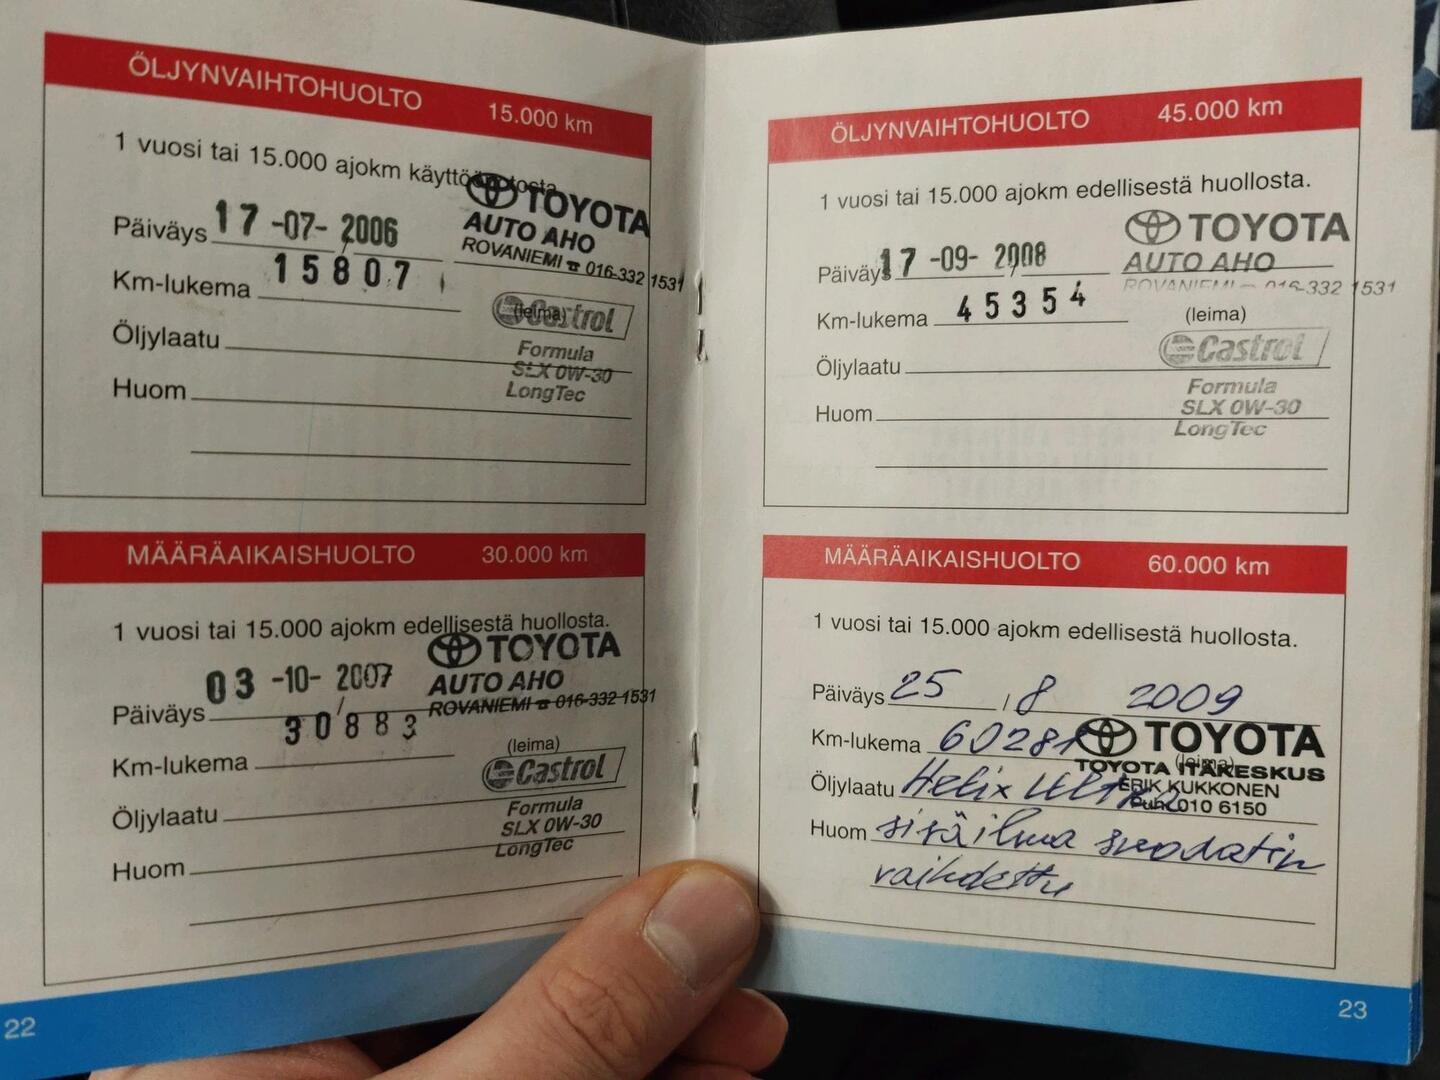 ÖLJYNVAIHTOHUOLTO 15.000 km
1 vuosi tai 15.000 ajokm käyttöönotosta.
Päiväys 17 -07- 2006
Km-lukema 15807
Öljylaatu
Huom
TOYOTA
AUTO AHO
ROVANIEMI ☎ 016-332 1531
(leima)
Castrol
Formula
SLX 0W-30
LongTec
MÄÄRÄAIKAISHUOLTO 30.000 km
1 vuosi tai 15.000 ajokm edellisestä huollosta.
Päiväys 03 -10- 2007
Km-lukema 30883
Öljylaatu
Huom
TOYOTA
AUTO AHO
ROVANIEMI ☎ 016-332 1531
(leima)
Castrol
Formula
SLX 0W-30
LongTec
22
ÖLJYNVAIHTOHUOLTO 45.000 km
1 vuosi tai 15.000 ajokm edellisestä huollosta.
Päiväys 17 -09- 2008
Km-lukema 45354
Öljylaatu
Huom
TOYOTA
AUTO AHO
ROVANIEMI 016-332 1531
(leima)
Castrol
Formula
SLX 0W-30
LongTec
MÄÄRÄAIKAISHUOLTO 60.000 km
1 vuosi tai 15.000 ajokm edellisestä huollosta.
Päiväys 25 / 8 2009
Km-lukema 60281
Öljylaatu Helix Ultra
Huom sisäilma suodatin
vaihdettu
TOYOTA
(leima)
TOYOTA ITÄKESKUS
ERIK KUKKONEN
Puh. 010 6150
23